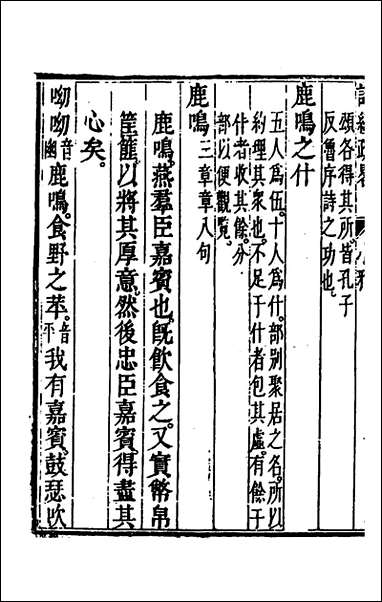 頌各得其所。皆孔子
反魯序詩之功也。
鹿鳴之什
五人爲伍。十人爲什。部別聚居之名。所以
約理其衆也。不足于什者包其虛。有餘于
什者收其餘。分
部以便觀覽。
鹿鳴三章章八句
鹿鳴。燕羣臣嘉賓也。旣飮食之。又實幣帛
筐篚。以將其厚意。然後忠臣嘉賓。得盡其
心矣。
呦呦音幽鹿鳴。食野之苹。音平我有嘉賓。鼓瑟吹